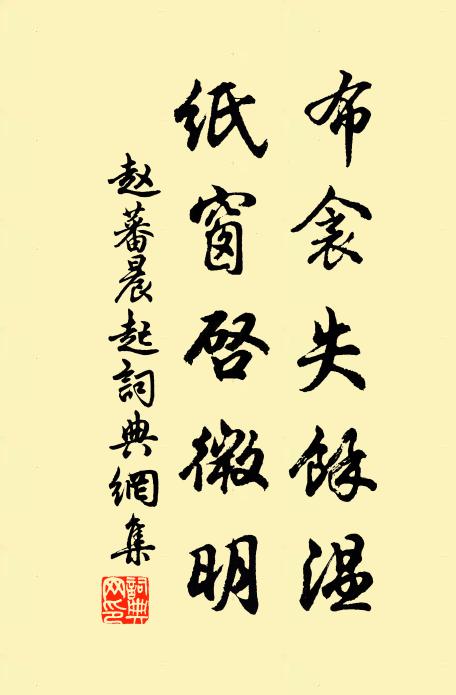 布衾失餘温
纸窗啓微明
赵蕃晨起詞典網集
詞典网印